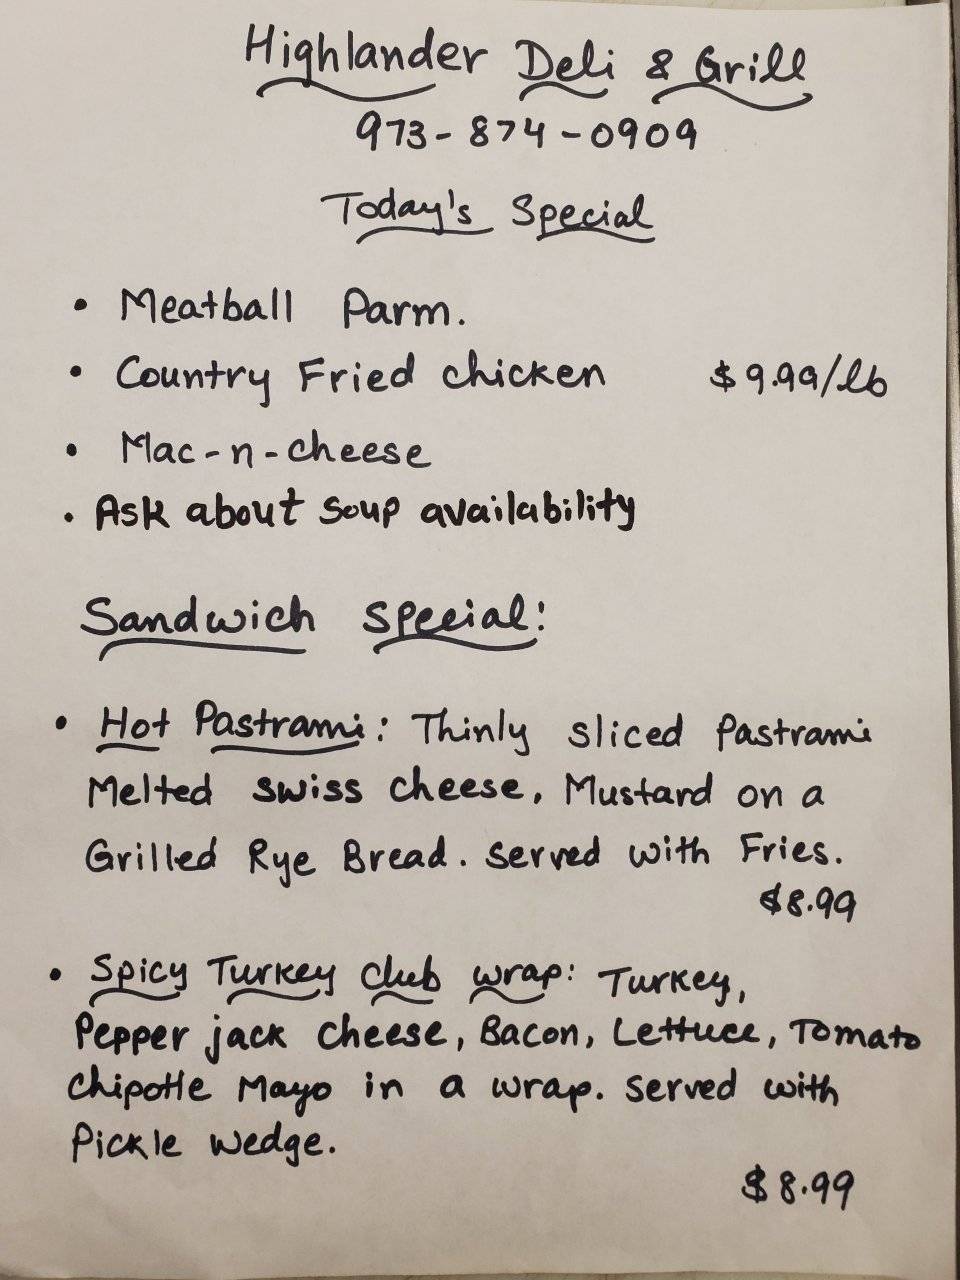 Highlander Deli & Grill
973-874-0909
Today's Special
• Meatball Parm.
• Country Fried chicken $9.99/lb
• Mac-n-cheese
• Ask about soup availability
Sandwich Special:
• Hot Pastrami: Thinly sliced Pastrami
Melted swiss cheese, Mustard on a
Grilled Rye Bread. served with Fries.
$8.99
• Spicy Turkey club wrap: Turkey,
Pepper jack cheese, Bacon, Lettuce, Tomato
chipotle Mayo in a wrap. served with
Pickle wedge.
$8.99